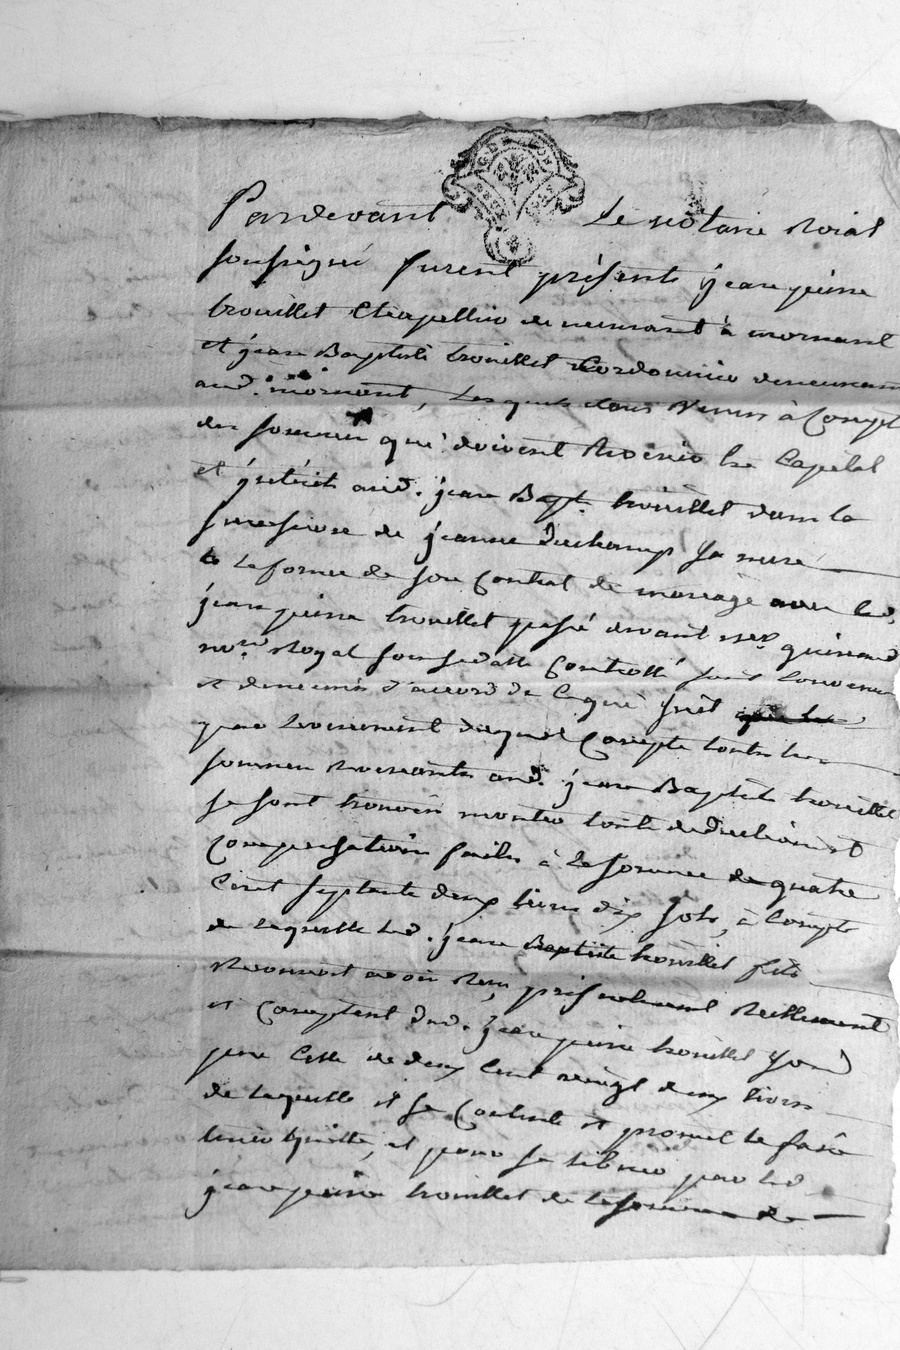 Pardevant Le notaire Roial
soussigné furent présents jean pierre
trouillet Chapellier demeurant à mornant
et jean Baptiste trouillet Cordonnier demeurant
aud. mornant, Lesquels venus à Compte
des sommes que doivent en Capital
et jntérêts aud. jean Bapt. trouillet dans la
succession de jeanne Duchamp sa mere
a La forme de son Contrat de mariage avec led.
jean pierre trouillet passé devant me.
not.re Royal Controllé, sont Convenus
et demeurés d'accord de Ce qui suit
par Levenement duquel Compte toutes les
sommes Revenantes aud. jean Baptiste trouillet
se sont trouvées monter toute deduction et
Compensation faites à La somme de quatre
Cent septante deux livres dix sols, à Compte
de laquelle led. jean Baptiste trouillet fils
Reconnoit avoir Reçu presentement Reellement
et Comptant dud. jean pierre trouillet son
pere Celle de deux Cent vingt deux livres
de laquelle il se Contente et promet le faire
tenir quitte, et pour se liberer par led.
jean pierre trouillet de la somme de